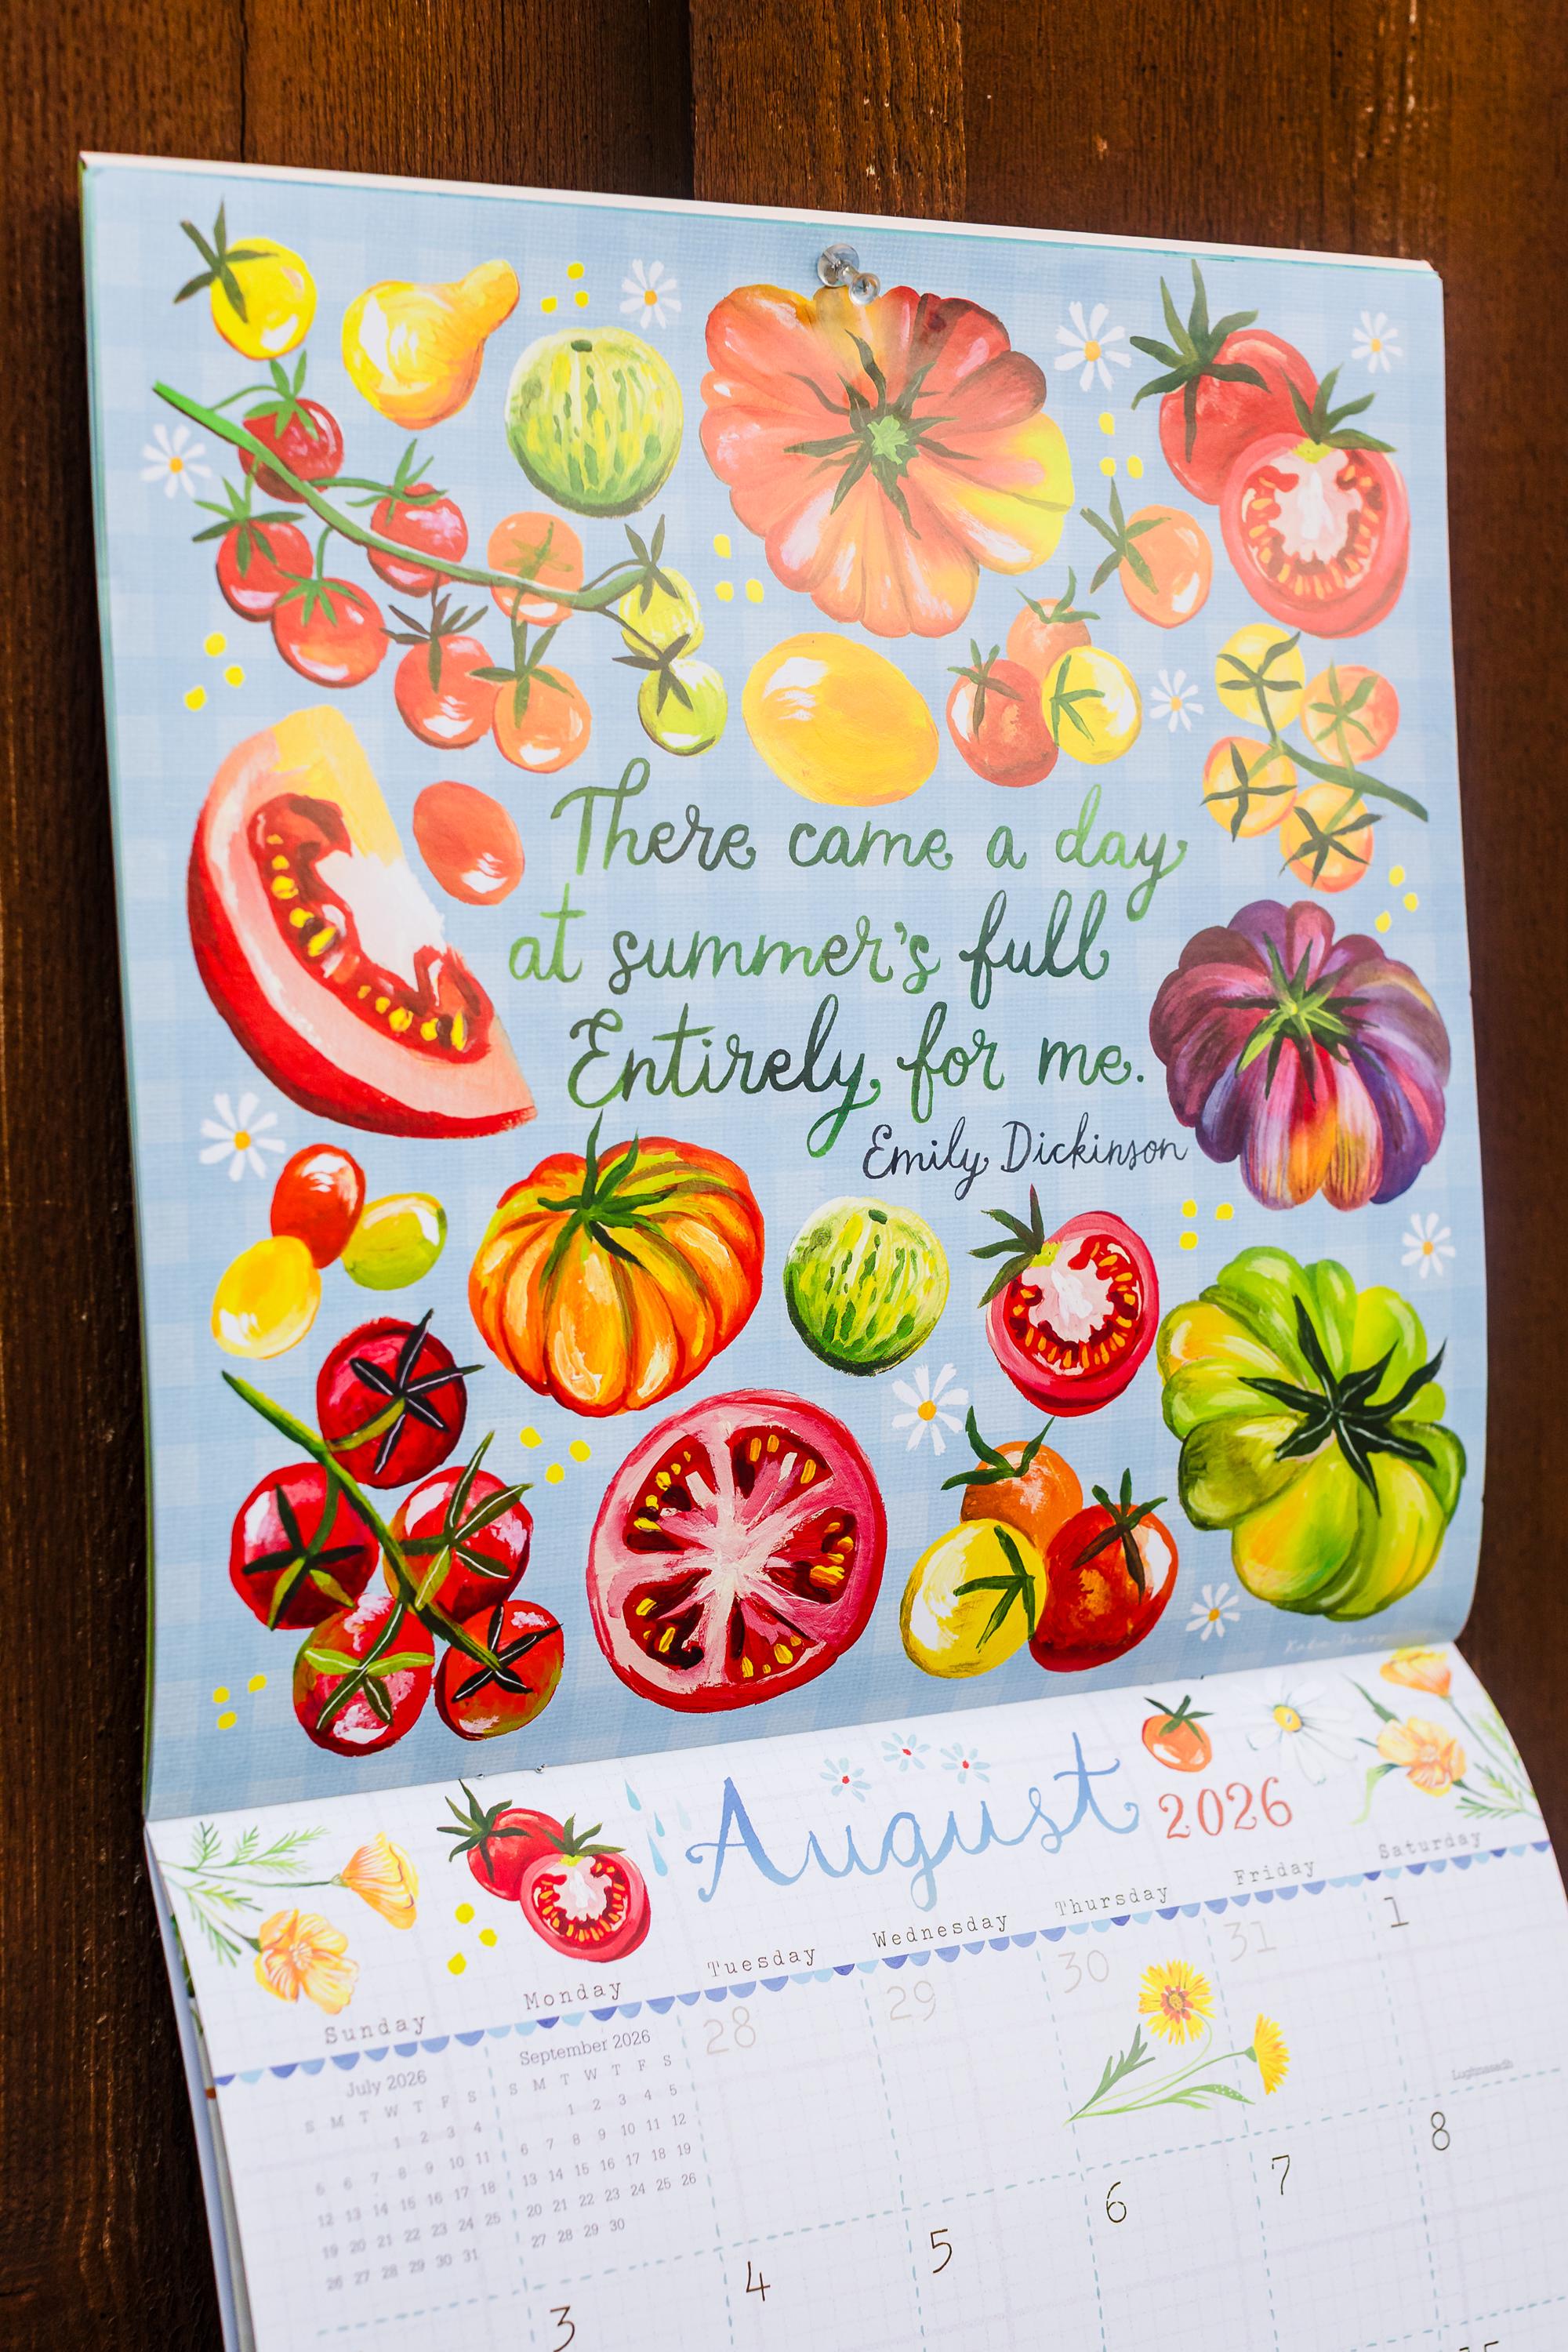 There came a day
at summer's full
Entirely for me.
Emily Dickinson
August 2026
Sunday Monday Tuesday Wednesday Thursday Friday Saturday
July 2026
S M T W T F S
1 2 3 4
5 6 7 8 9 10 11
12 13 14 15 16 17 18
19 20 21 22 23 24 25
26 27 28 29 30 31
September 2026
S M T W T F S
1 2 3 4 5
6 7 8 9 10 11 12
13 14 15 16 17 18 19
20 21 22 23 24 25 26
27 28 29 30
28 29 30 31 1
Lughnasadh
3 4 5 6 7 8